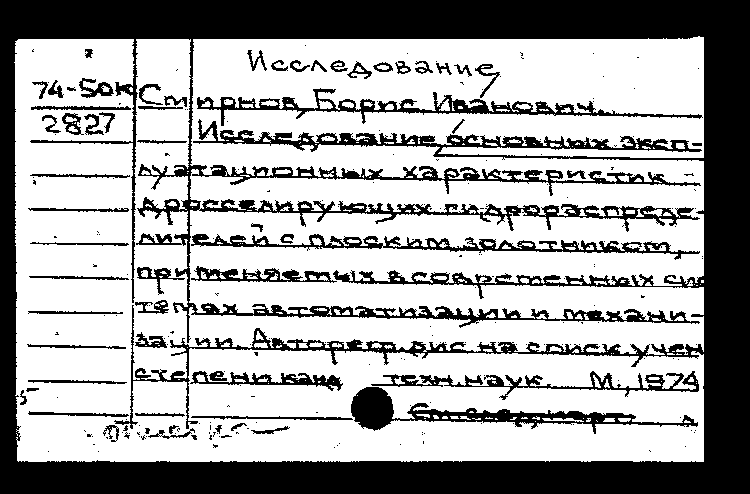 Исследование
74-50к Смирнов, Борис Иванович.
2827 Исследование основных эксп-
луатационных характеристик
дросселирующих гидрораспреде-
лителей с плоским золотником,
применяемых в современных сис
темах автоматизации и механи-
зации. Автореф. дис. на соиск. учен
степени канд техн. наук. М., 1974
См. след. карт.